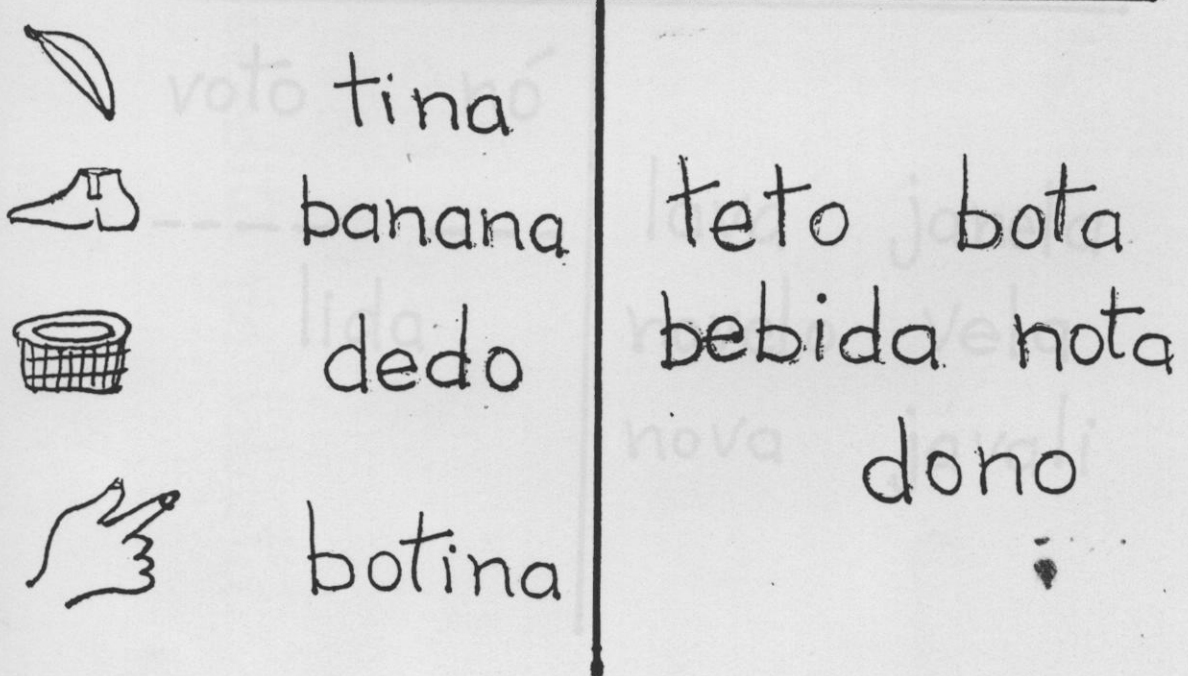 tina
banana
dedo
botina
teto bota
bebida nota
dono